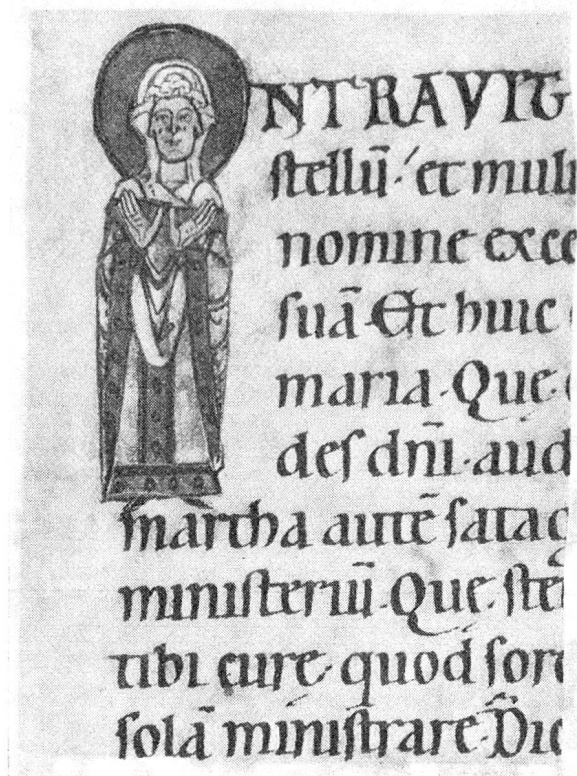 NTRAVIT
ſtellū. et muli
nomine exce
ſuā. Et huic
maria. Que
deſ dn̄i. aud
martha autē ſatag
miniſteriū. Que ſte
tibi cure quod ſoro
ſolā miniſtrare. Dic